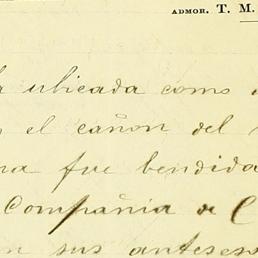 ADMOR. T. M.
ubicada como
el cañon del
fue bendida
Compañia de C
sus anteses